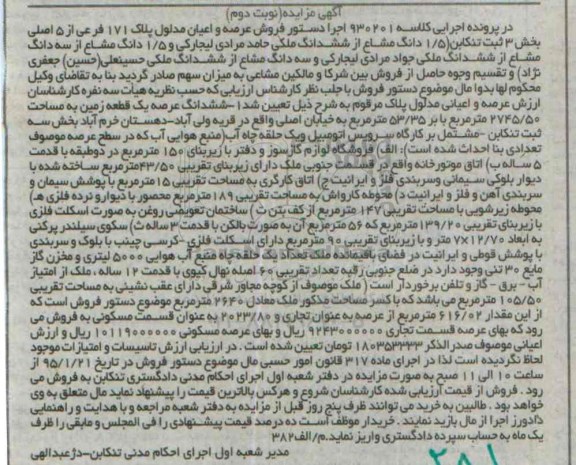 آگهی مزایده(نوبت دوم)
در پرونده اجرایی کلاسه ۹۳۰۲۰۱ اجرا دستور فروش عرصه و اعیان مدلول پلاک ۱۷۱ فرعی از ۵ اصلی
بخش ۳ ثبت تنکابن(۱/۵ دانگ مشاع از ششدانگ ملکی حامد مرادی لیجارکی و ۱/۵ دانگ مشاع از سه دانگ
مشاع از ششدانگ ملکی جواد مرادی لیجارکی و سه دانگ مشاع از ششدانگ ملکی حسینعلی(حسین) جعفری
نژاد) و تقسیم وجوه حاصل از فروش بین شرکا و مالکین مشاعی به میزان سهم صادر گردید بنا به تقاضای وکیل
محکوم لها بدوا مال موضوع دستور فروش با جلب نظر کارشناس ارزیابی که حسب نظریه هیأت سه نفره کارشناسان
ارزش عرصه و اعیانی مدلول پلاک مرقوم به شرح ذیل تعیین شد۱-ششدانگ عرصه یک قطعه زمین به مساحت
۲۷۴۵/۵۰ مترمربع با بر ۵۳/۳۵ مترمربع به خیابان اصلی واقع در قریه ولی آباد-دهستان خرم آباد بخش سه
ثبت تنکابن -مشتمل بر کارگاه سرویس اتومبیل ویک حلقه چاه آب(منبع هوایی آب که در سطح عرصه موصوف
تعدادی بنا احداث شده است): الف) فروشگاه لوازم گازسوز و دفتر با زیربنای ۱۵۰ مترمربع در دوطبقه با قدمت
۵ ساله ب) اتاق موتورخانه واقع در قسمت جنوبی ملک دارای زیربنای تقریبی ۴۳/۵۰مترمربع ساخته شده با
دیوار بلوکی سیمانی وسربندی فلز و ایرانیت ج) اتاق کارگری به مساحت تقریبی ۱۵ مترمربع با پوشش سیمان و
سربندی آهن و فلز و ایرانیت د) محوطه کارواش به مساحت تقریبی ۱۸۹ مترمربع محصور با دیوار و نرده فلزی هـ)
محوطه زیرشویی با مساحت تقریبی ۱۴۷ مترمربع از کف بتن ث) ساختمان تعویضی روغن به صورت اسکلت فلزی
با زیربنای تقریبی ۱۳۹/۲۰ مترمربع که ۵۶ مترمربع آن به صورت بالکن با قدمت ۳ ساله ث) سکوی سیلندر پرکنی
به ابعاد ۷×۱۲/۷۰ متر و با زیربنای تقریبی ۹۰ مترمربع دارای اسکلت فلزی -کرسی چینی با بلوک و سربندی
با پوشش قوطی و ایرانیت در فضای باقیمانده ملک تعداد یک حلقه چاه منبع آب هوایی ۵۰۰۰ لیتری و مخزن گاز
مایع ۳۰ تنی وجود دارد در ضلع جنوبی رقبه تعداد تقریبی ۶۰ اصله نهال کیوی با قدمت ۱۲ ساله ، ملک از امتیاز
آب - برق - گاز و تلفن برخوردار است ( ملک موصوف از کوچه مجاور شرقی دارای عقب نشینی به مساحت تقریبی
۱۰۵/۵۰ مترمربع می باشد که با کسر مساحت مذکور ملک معادل ۲۶۴۰ مترمربع موضوع دستور فروش است که
از این مقدار ۶۱۶/۰۲ مترمربع از عرصه به عنوان تجاری و ۲۰۲۳/۸۰ به عنوان قسمت مسکونی به فروش می
رود که بهای عرصه قسمت تجاری ۹۲۴۳۰۰۰۰۰۰ ریال و بهای عرصه مسکونی ۱۰۱۱۹۰۰۰۰۰۰ ریال و ارزش
اعیانی موصوف صدر الذکر ۱۸۰۳۵۳۳۳۳ تومان تعیین شده است . در ارزیابی ارزش تاسیسات و امتیازات موجود
لحاظ نگردیده است لذا در اجرای ماده ۳۱۷ قانون امور حسبی مال موضوع دستور فروش در تاریخ ۹۵/۱/۲۱ از
ساعت ۱۰ الی ۱۱ صبح به صورت مزایده در دفتر شعبه اول اجرای احکام مدنی دادگستری تنکابن به فروش می
رود . فروش از قیمت ارزیابی شده کارشناسان شروع و هرکس بالاترین قیمت را پیشنهاد نماید مال متعلق به وی
خواهد بود . طالبین به خرید می توانند ظرف پنج روز قبل از مزایده به دفتر شعبه مراجعه و با هدایت و راهنمایی
دادورز اجرا از مال بازدید نمایند . خریدار موظف است ده درصد قیمت پیشنهادی را فی المجلس و مابقی را ظرف
یک ماه به حساب سپرده دادگستری واریز نماید.م/الف۳۸۲
مدیر شعبه اول اجرای احکام مدنی تنکابن-دژ عبدالهی